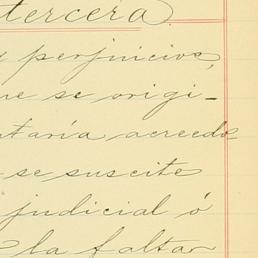 tercera.
y perjuicios,
ue se origi-
ntaría acreedo
se suscite
judicial ó
la faltar